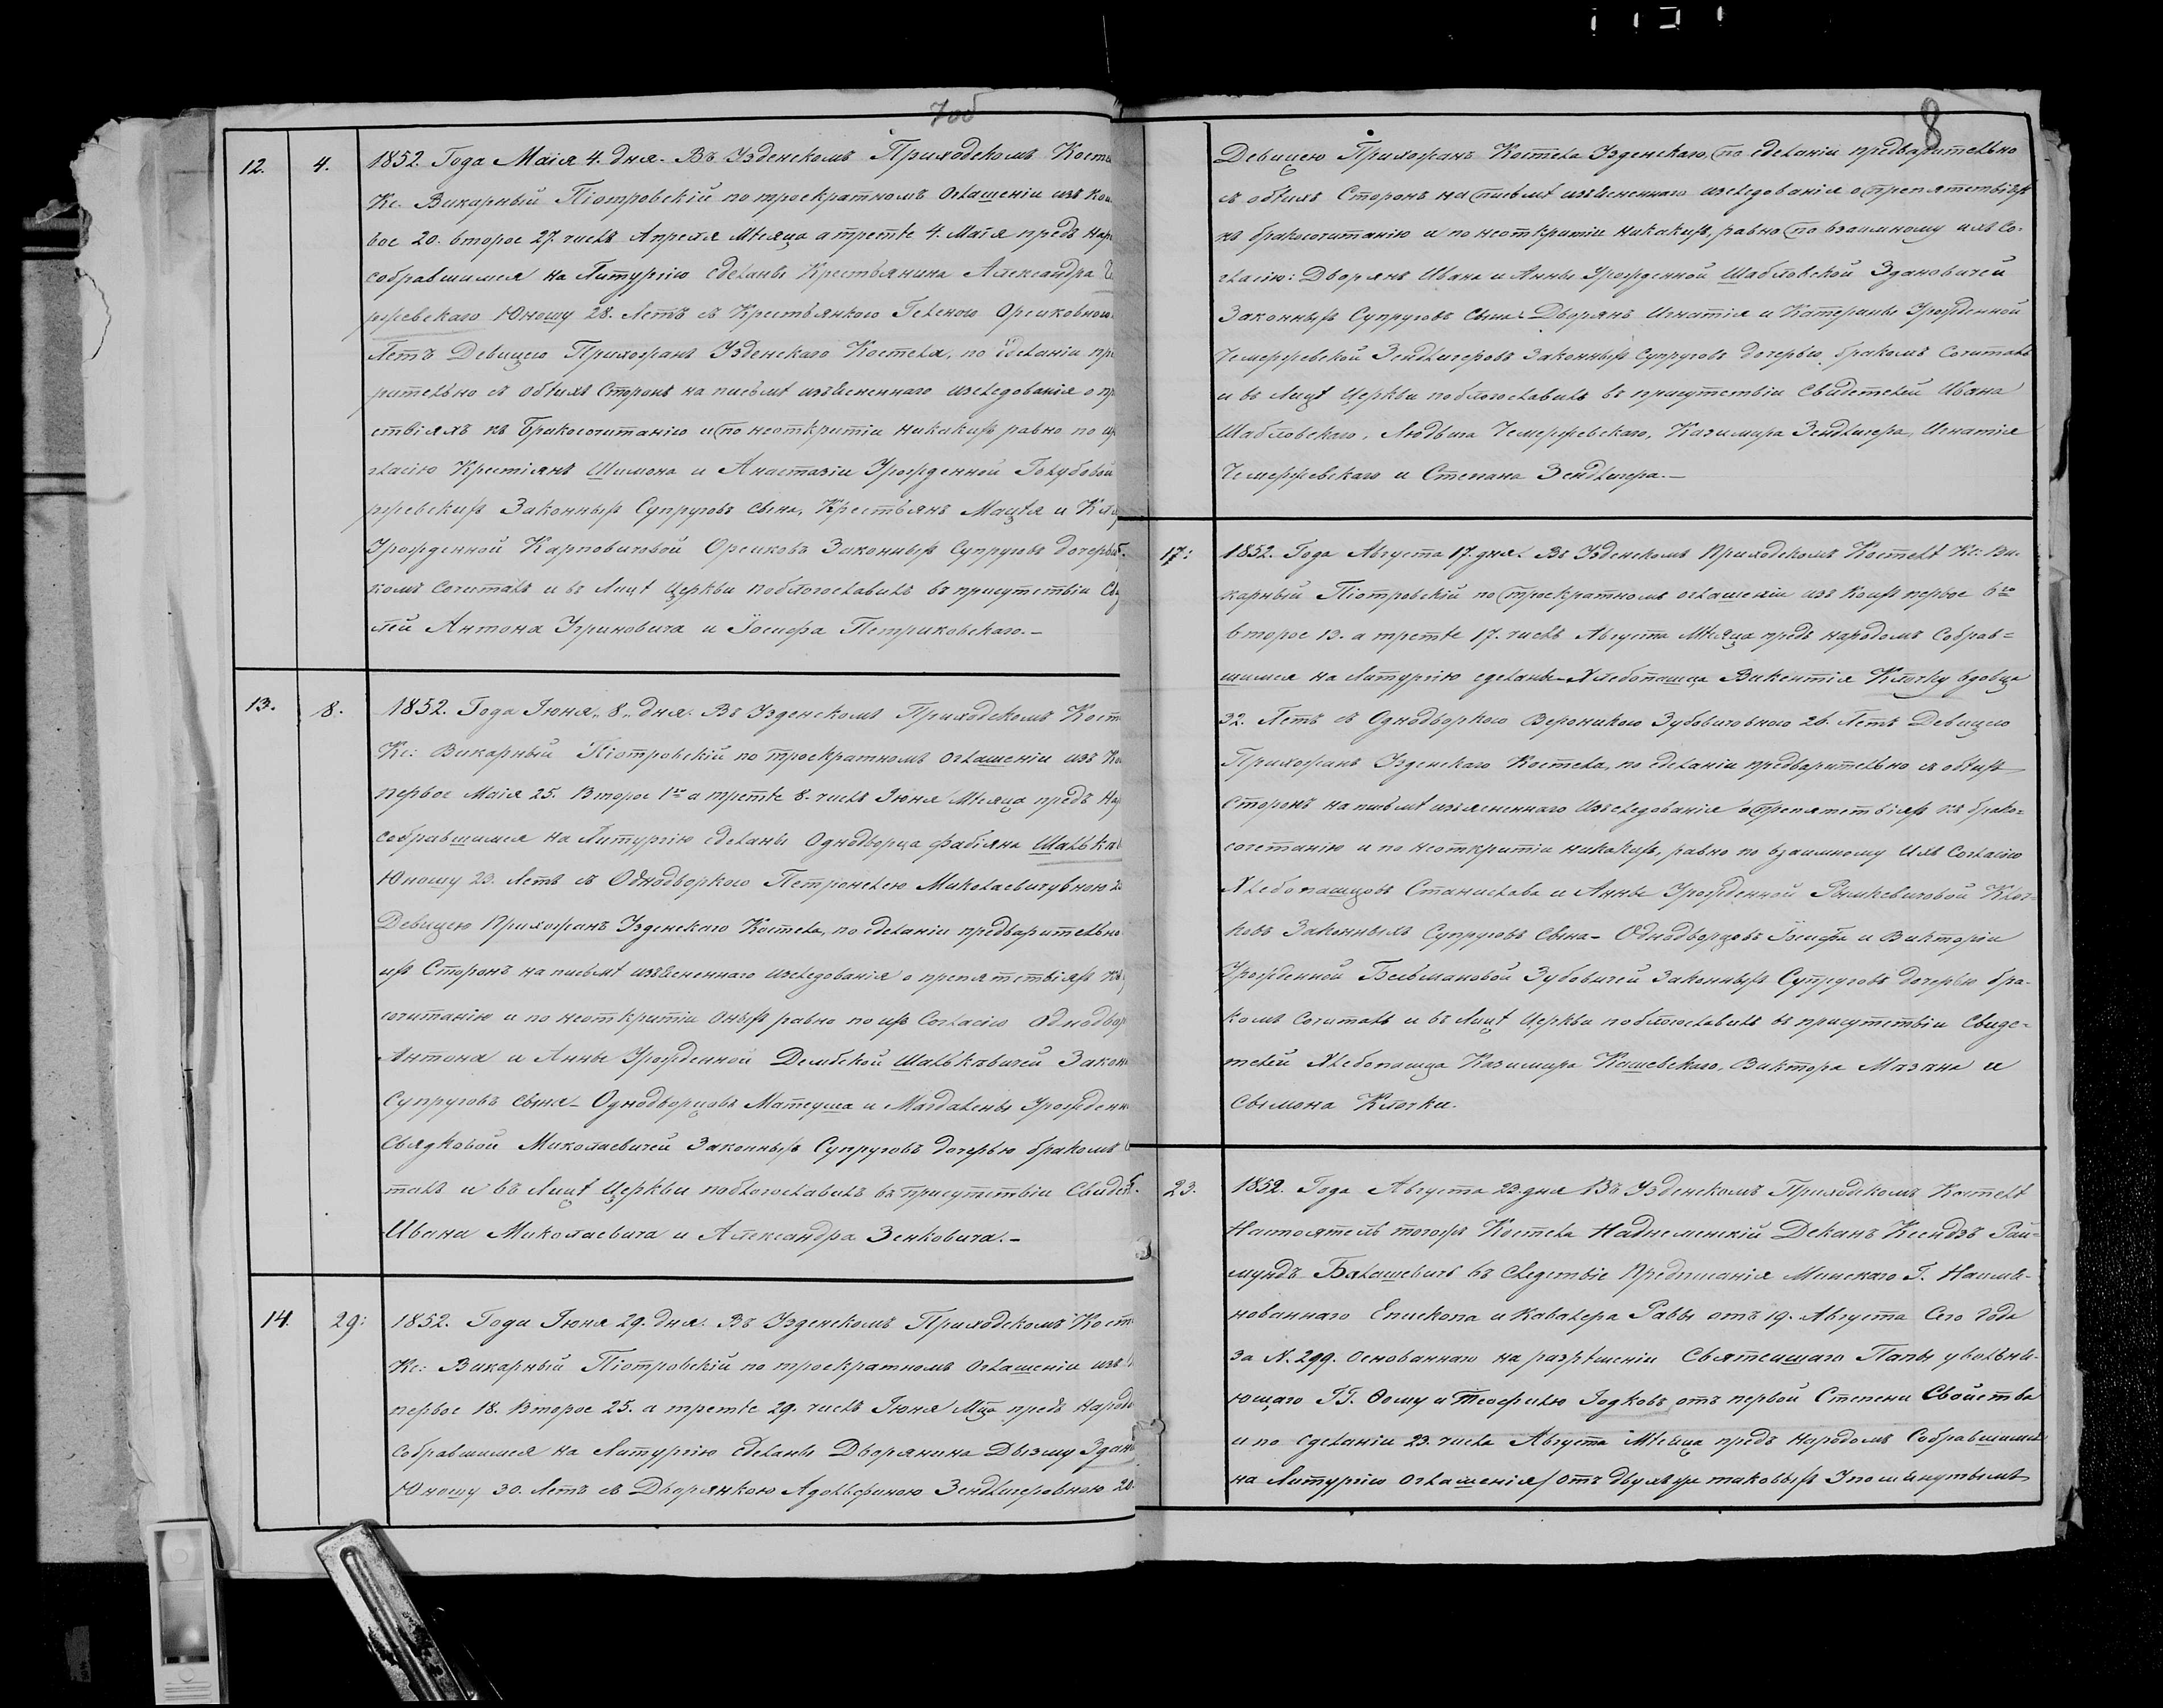 7об
12. 4. 1852. Года Маія 4. дня. Въ Узденскомъ Приходскомъ
Кс: Викарный Піотровскій по троекратномъ Оглашеніи изъ
вое 20. второе 27. числъ Апреля Мѣсяца а третѣе 4. Маія предъ
собравшимся на Литургію сдѣланы Крестьянина Александра
ржевскаго Юношу 28. Летъ съ Крестьянкою Геленою Орсиковною
Летъ Девицею Прихожанъ Узденскаго Костела, по сдѣланіи
рительно съ обѣихъ Сторонъ на письмѣ изъясненнаго изслѣдованія о
ствіяхъ къ Бракосочитанію и по неоткритіи никакихъ равно по
гласію Крестіянъ Шимона и Анастазіи Урожденной Голубовой
ржевскихъ Законныхъ Супруговъ Сына, Крестьянъ Мацѣя и
Урожденной Карповичовой Орсиковъ Законныхъ Супруговъ дочерью
комъ Сочиталъ и въ Лицѣ Церкви поблогославилъ въ присутствіи
лей Антона Угриновича и Іосифа Петриковскаго.-
13. 8. 1852. Года Іюня „8„ дня. Въ Узденскомъ Приходскомъ
Кс: Викарный Піотровскій по троекратномъ Оглашеніи изъ
первое Маія 25. Второе 1го а третѣе 8. числъ Іюня Мѣсяца предъ
собравшимся на Литургію сдѣланы Однодворца Фабіяна
Юношу 23. Летъ съ Однодворкою Петронелею Миколаевичувною
Девицею Прихожанъ Узденскаго Костела, по сдѣланіи предварительно
ихъ Сторонъ на письмѣ изъясненнаго изслѣдованія о препятствіяхъ
сочитанію и по неоткритіи оныхъ равно по ихъ Согласію
Антона и Анны Урожденной Дембской Шалькевичей
Супруговъ Сына - Однодворцовъ Матеуша и Магдалены
Свядковой Миколаевичей Законныхъ Супруговъ дочерью бракомъ
талъ и въ Лицѣ Церкви поблогославилъ въ присутствіи
Ивана Миколаевича и Александра Зенковича.-
14. 29: 1852. Года Іюня 29. дня. Въ Узденскомъ Приходскомъ
Кс: Викарный Піотровскій по троекратномъ Оглашеніи изъ
первое 18. Второе 25. а третѣе 29. числъ Іюня Мца предъ
собравшимся на Литургію сдѣланы Дворянина
Юношу 30. Летъ съ Дворянкою Адольфиною Зендлигеровною
8
Девицею Прихожанъ Костела Узденскаго, по сдѣланіи предварительно
съ обѣихъ Сторонъ на письмѣ изъясненнаго изслѣдованія о препятствіяхъ
къ бракосочитанію и по неоткритіи никакихъ, равно по взаимному ихъ Со-
гласію: Дворянъ Ивана и Анны Урожденной Шабловской Здановичей
Законныхъ Супруговъ Сына - Дворянъ Игнатія и Катерины Урожденной
Чемержевской Зендлигеровъ Законныхъ Супруговъ дочерью, бракомъ Сочиталъ
и въ Лицѣ Церкви поблогославилъ въ присутствіи Свидетелей Ивана
Шабловскаго, Людвига Чемержевскаго, Казимира Зендлигера, Игнатія
Чемержевскаго и Степана Зендлигера.-
17: 1852. Года Августа 17. дня. Въ Узденскомъ Приходскомъ Костелѣ Кс: Ви-
карный Піотровскій по троекратномъ оглашеніи изъ коихъ первое 6го
второе 13. а третѣе 17. числъ Августа Мѣсяца предъ народомъ Собрав=
шимся на Литургію сдѣланы - Хлебопашца Викентія Клочку вдовца
32. Летъ съ Однодворкою Вероникою Зубовичовною 26. Летъ Девицею
Прихожанъ Узденскаго Костела, по сдѣланіи предварительно съ обѣихъ
сторонъ на письмѣ изъясненнаго Изслѣдованія о препятствіяхъ къ брако=
сочетанію и по неоткритіи никакихъ, равно по взаимному Ихъ Согласію
Хлебопашцовъ Станислава и Анны Урожденной Рымкевичовой Клоч=
ковъ Законныхъ Супруговъ Сына - Однодворцовъ Іосифа и Викторіи
Урожденной Бельмановой Зубовичей Законныхъ Супруговъ дочерью бра-
комъ Сочиталъ и въ Лицѣ Церкви поблогославилъ въ присутствіи Свиде=
телей Хлебопашца Казимира Кашевскаго, Виктора Мазана и
Сымона Клочки.
23. 1852. Года Августа 23 дня Въ Узденскомъ Приходскомъ Костелѣ
Настоятель тогожъ Костела Надиеменскій Деканъ Ксіндзъ Рай-
мундъ Балашевичъ въ слѣдствіе Предписанія Минскаго Г. Наиме-
нованнаго Епископа и Кавалера Раввы отъ 19. Августа Сего Года
за N. 299. основаннаго на разрѣшеніи Святейшаго Папы увольня-
ющаго ГГ. Фому и Теофилю Годковъ отъ первой Степени Свойства
и по сдѣланіи 23. числа Августа Мѣсяца предъ Народомъ Собравшимся
на Литургію Оглашенія / отъ двухъ же таковыхъ Упомянутымъ